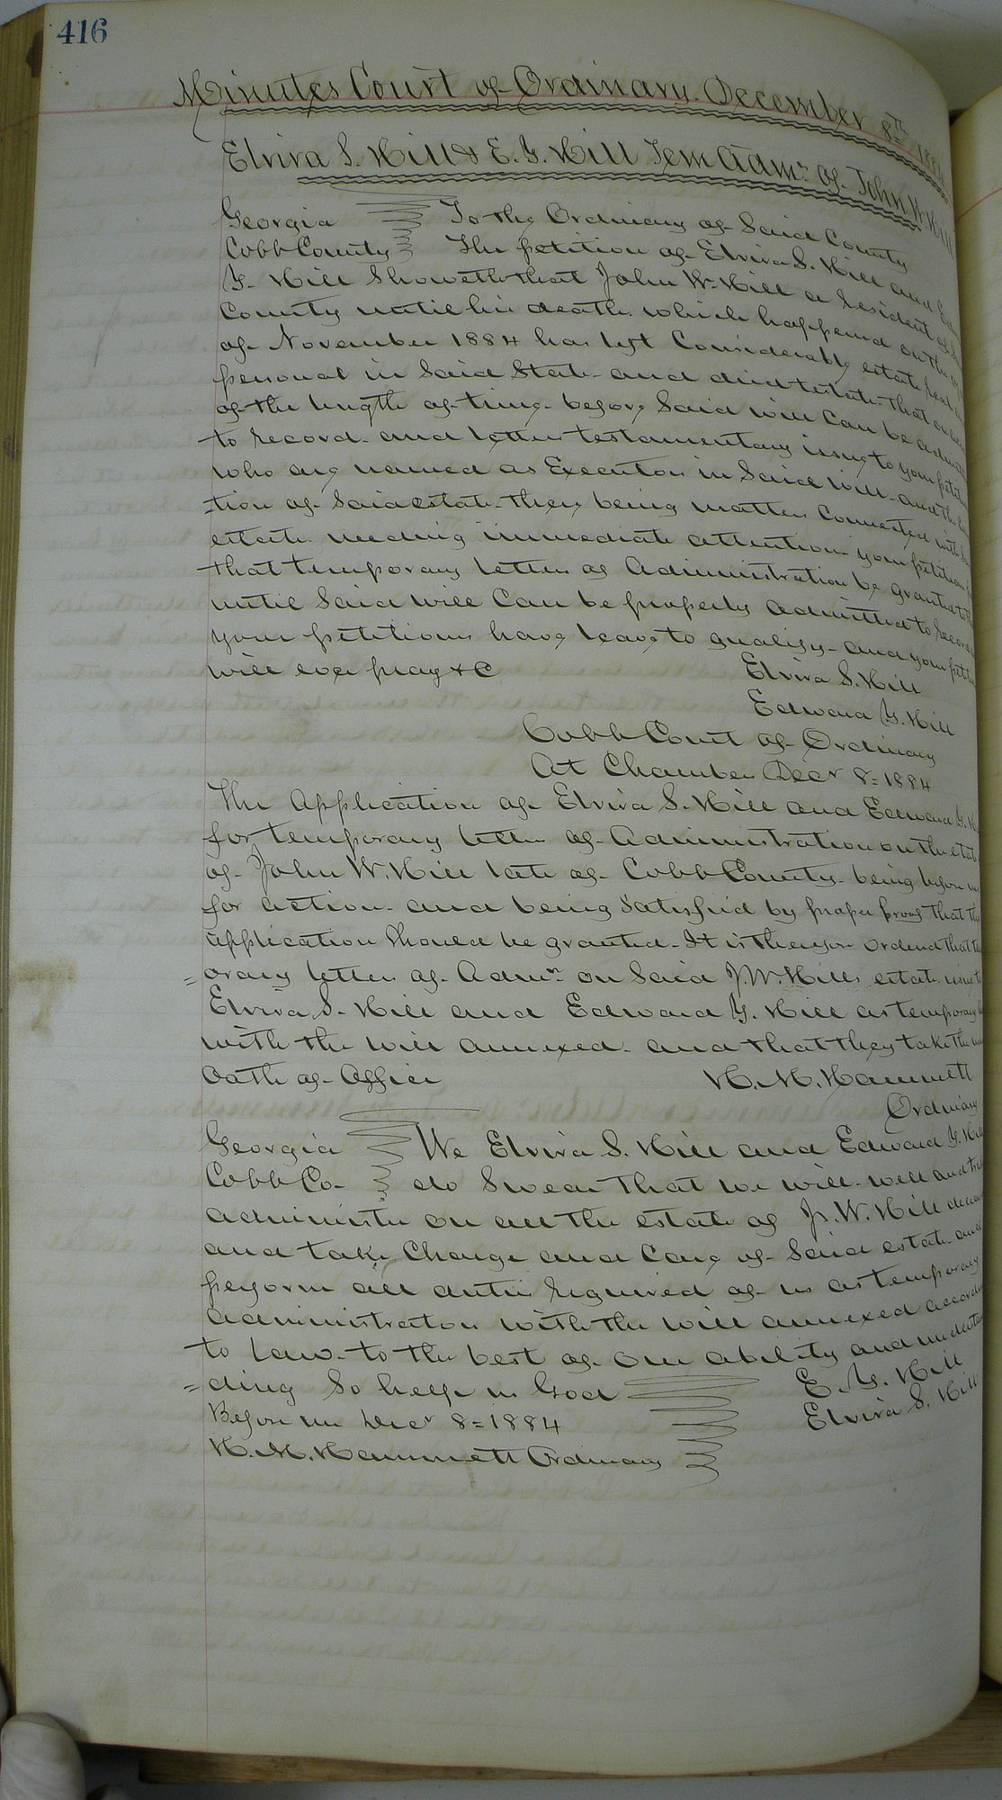 416
Minutes Court of Ordinary. December 8th 1884
Elvira S. Hill & E. Y. Hill Tem Adm^rs of John W. Hill
Georgia To the Ordinary of Said County
Cobb County The petition of Elvira S. Hill and
Y. Hill Showeth that John W. Hill a resident of
County until his death which happend on the
of November 1884 has left Considerable estate real
personal in Said State and died testate that on
of the length of time before Said will Can be
to record and letters testamentary issue to your
who are named as Executors in Said will and the
-tion of Said estate there being matters Connected with
estate needing immediate attention your petitioners
that temporary letters of Administration be granted to
until Said will Can be properly admitted to record
your petitioners have leave to qualify and your
will ever pray &C Elvira S. Hill
Edward Y. Hill
Cobb Court of Ordinary
At Chambers Decr 8=1884
The Application of Elvira S. Hill and Edward Y.
for temporary letters of Administration on the
of John W. Hill late of Cobb County being before
for action and being Satisfied by proper proof that
application Should be granted It is therefore ordered that
=orary letters of Admn on Said J. W. Hills estate issue
Elvira S. Hill and Edward Y. Hill as temporary
with the will annexed and that they take the
Oath of Office H. M. Hammett
Ordinary
Georgia We Elvira S. Hill and Edward Y. Hill
Cobb Co do Swear that we will well and
administer on all the estate of J. W. Hill
and take Charge and Care of Said estate and
perform all duties required of us as temporary
administrators with the will annexed
to law to the best of our ability and
=ding So help us God E. Y. Hill
Before me Decr 8=1884 Elvira S. Hill
H. M. Hammett Ordinary